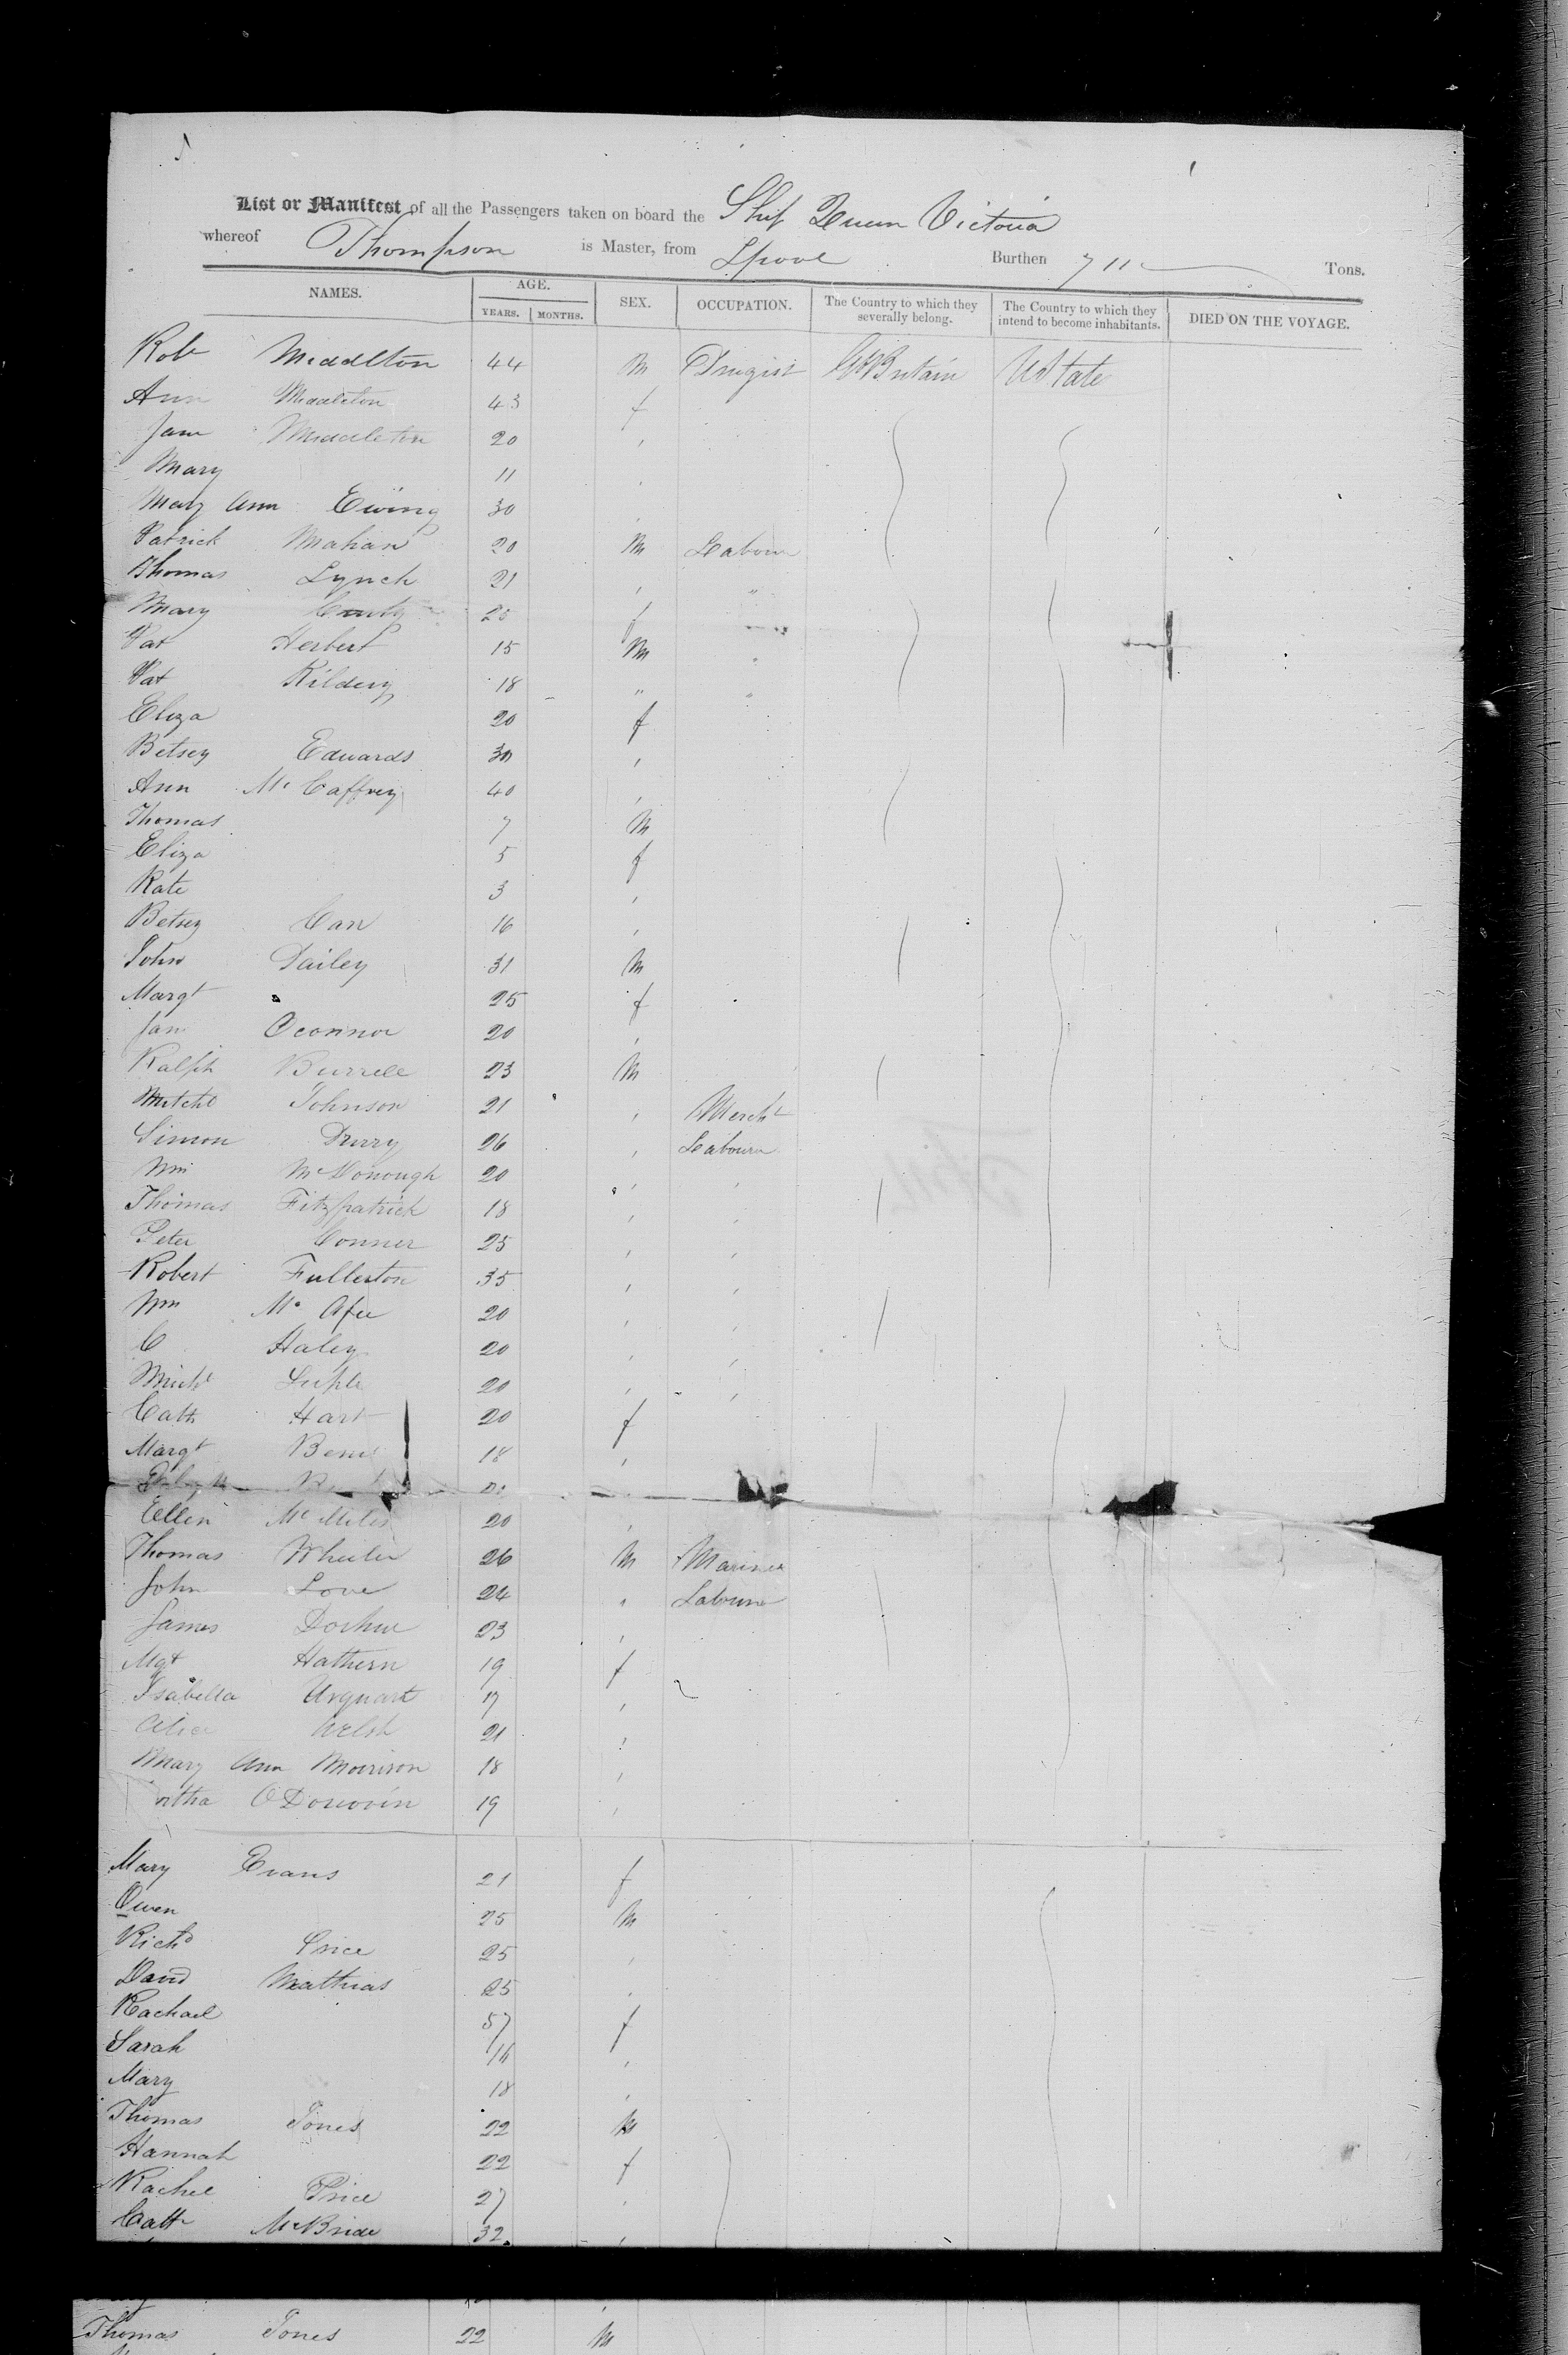 List or Manifest of all the Passengers taken on board the Ship Queen Victoria
whereof Thompson is Master, from Lpool Burthen 711 Tons.
NAMES. AGE. YEARS. MONTHS. SEX. OCCUPATION. The Country to which they severally belong. The Country to which they intend to become inhabitants. DIED ON THE VOYAGE.
Robt Middleton 44 M Drugist Gt Britain U State
Ann Middleton 43 f
Jane Middleton 20 "
Mary 11 "
Mary Ann Ewing 30
Patrick Mahan 20 M Labour
Thomas Lynch 21 " "
Mary 25 f
Pat Herbert 15 M "
Pat Kildery 18 " "
Eliza 20 f
Betsey Edwards 30 "
Ann Mc Caffrey 40 "
Thomas 7 M
Eliza 5 f
Kate 3 "
Betsey Carr 16 "
John Dailey 31 M
Margt " 25 f
Jane Oconnor 20 "
Ralph Burrell 23 M
Mitchl Johnson 21 " Mercht
Simon Drury 26 " Labourer
Wm McDonough 20 " "
Thomas Fitzpatrick 18 " "
Peter Conner 25 " "
Robert Fullerton 35 " "
Wm Mc Afee 20 " "
C Haley 20 " "
Michl 20 " "
Cath Hart 20 f
Margt 18 "
Ellen Mc 20 "
Thomas Wheeler 26 M Mariner
John Love 24 " Labourer
James 23 "
Mgt Hathern 19 f
Isabella Urquart 17 "
Alice Welsh 21 "
Mary Ann Morrison 18 "
ntha O Donovin 19 "
Mary Evans 21 f
Owen 25 M
Richd Price 25 "
David Mathias 25 "
Rachael 57 f
Sarah 16 "
Mary 18 "
Thomas Jones 22 M
Hannah 22 f
Rachel Price 27 "
Cath McBride 32 "
Thomas Jones 22 M